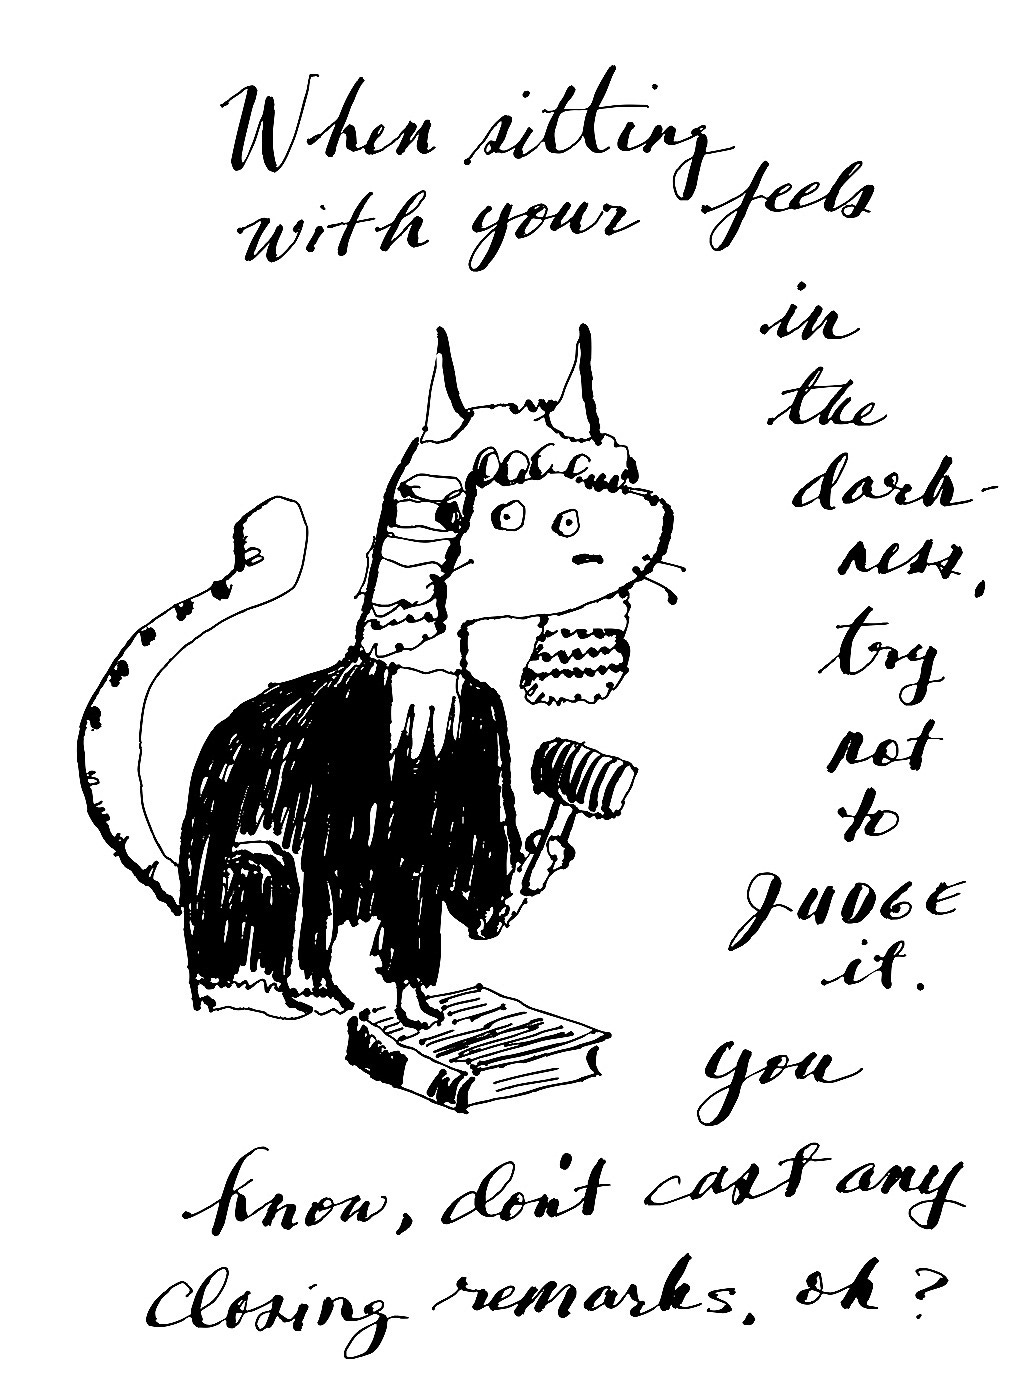 When sitting
with your feels
in
the
dark-
ness,
try
not
to
JUDGE
it.
you
know, don't cast any
closing remarks. ok?